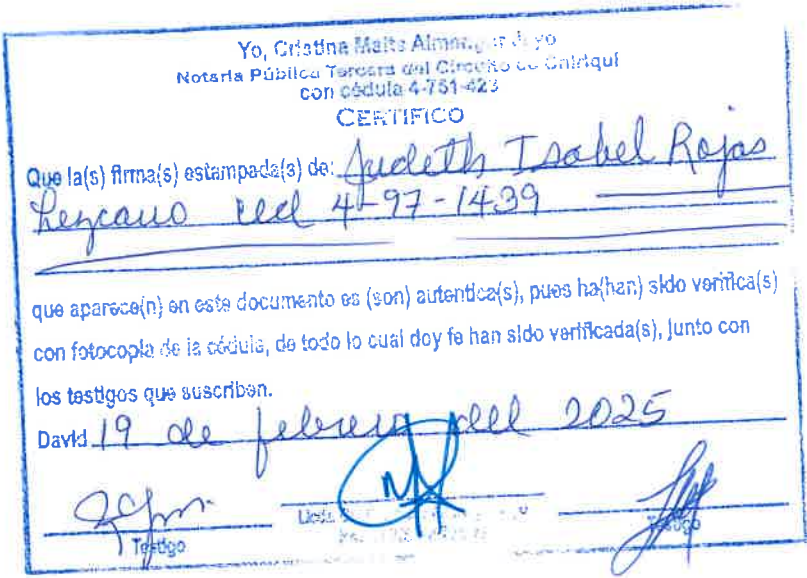 Yo, Cristina Maite Almeng
Notaria Pública Tercera del Circuito de Chiriquí
con cédula 4-751-423
CERTIFICO
Que la(s) firma(s) estampada(s) de: Judeth Isabel Rojas
Lezcano ced 4-97-1439
que aparece(n) en este documento es (son) autentica(s), pues ha(han) sido verifica(s)
con fotocopia de la cédula, de todo lo cual doy fe han sido verificada(s), junto con
los testigos que suscriben.
David 19 de febrero del 2025
Testigo Testigo